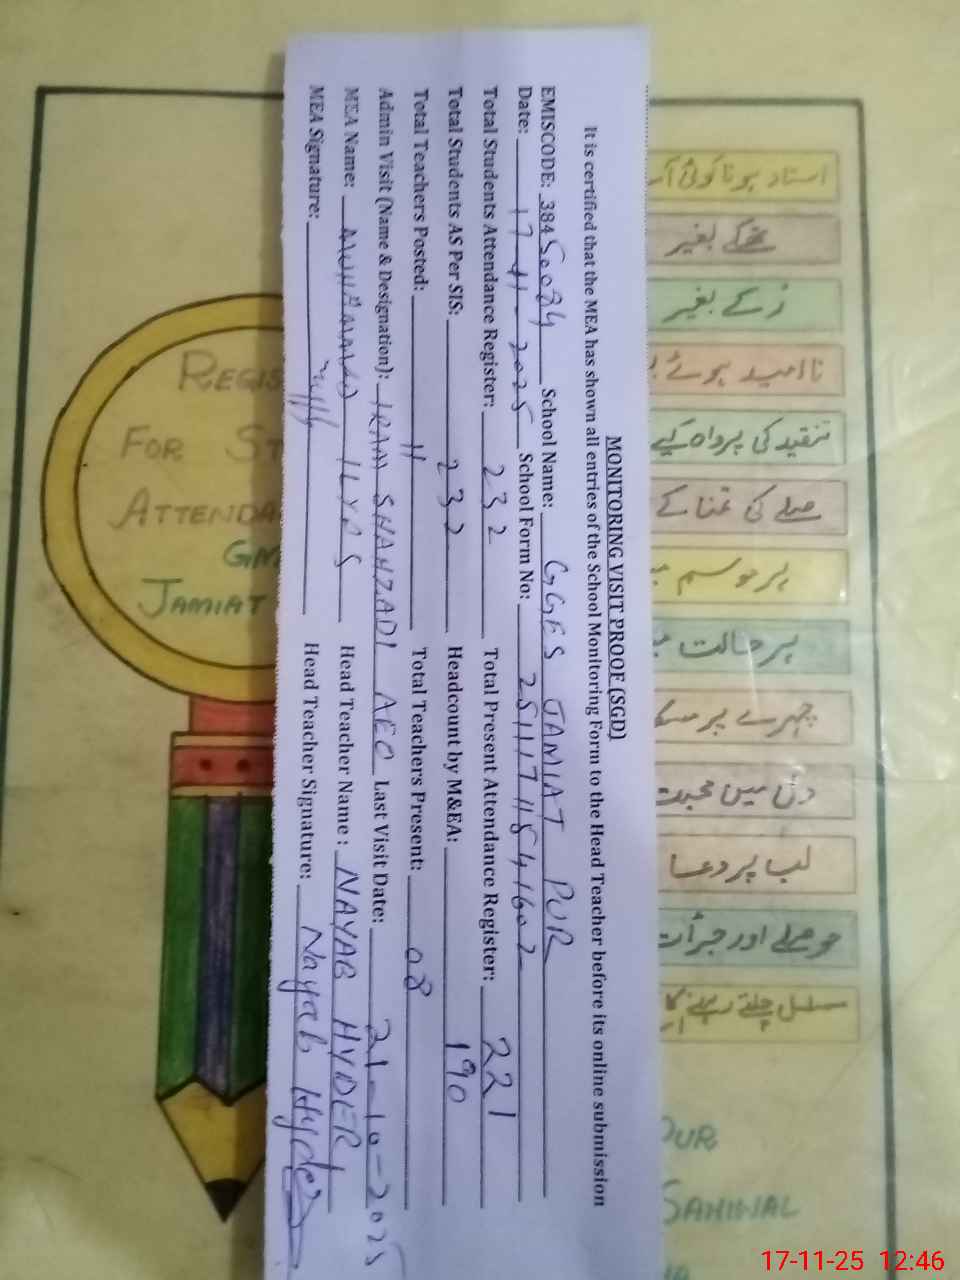 MONITORING VISIT PROOF (SGD)
It is certified that the MEA has shown all entries of the School Monitoring Form to the Head Teacher before its online submission
EMISCODE: 38450084 School Name: GGES JAMIAT PUR
Date: 17-11-2025 School Form No: 25111711541602
Total Students Attendance Register: 232 Total Present Attendance Register: 221
Total Students AS Per SIS: 232 Headcount by M&EA: 190
Total Teachers Posted: 11 Total Teachers Present: 08
Admin Visit (Name & Designation): IRAM SHAHZADI AEO Last Visit Date: 21-10-2025
MEA Name: MUHAMMAD ILYAS Head Teacher Name: NAYAB HYDER
MEA Signature: Head Teacher Signature: Nayab Hyder
REGIS
FOR ST
ATTENDA
JAMIAT
استاد ہونا کوئی آ
کے بغیر
ز کے بغیر
ناامید ہوئے
تنقید کی پرواہ کیے
صلے کی تمنا کے
ہر موسم
ہر حالت
چہرے پر مسک
دل میں محبت
لب پر دعا
حوصلے اور جرأت
مسلسل چلتے رہنے کا
PUR
SAHIWAL
17-11-25 12:46